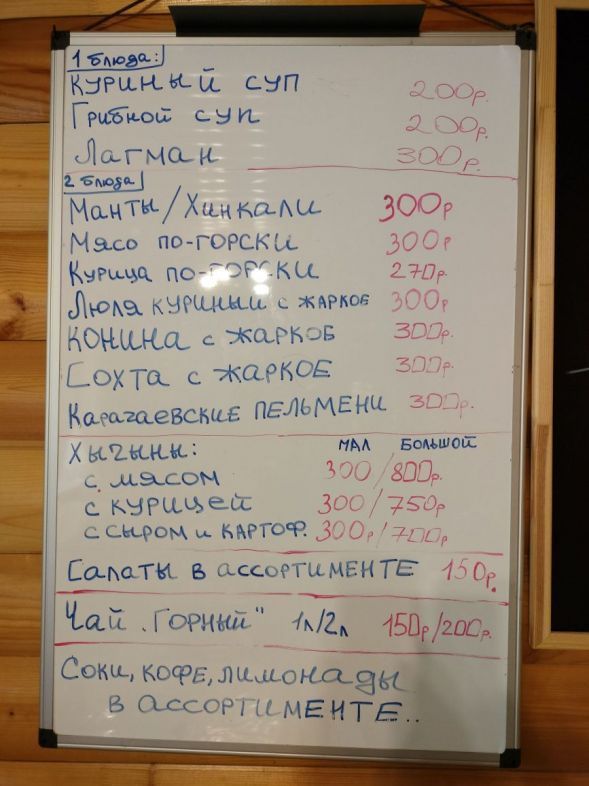 1 блюда:
Куриный суп 200р.
Грибной суп 200р.
Лагман 300р.
2 блюда
Манты/Хинкали 300р
Мясо по-горски 300р
Курица по-горски 270р.
Люля куриный с жаркое 300р
Конина с жаркоб 300р.
Сохта с жаркое 300р.
Карачаевские пельмени 300р.
Хычины: мал большой
с мясом 300/800р.
с курицей 300/750р
с сыром и картоф. 300р/700р
Салаты в ассортименте 150р.
Чай "Горный" 1л/2л 150р/200р.
Соки, кофе, лимонады
в ассортименте..